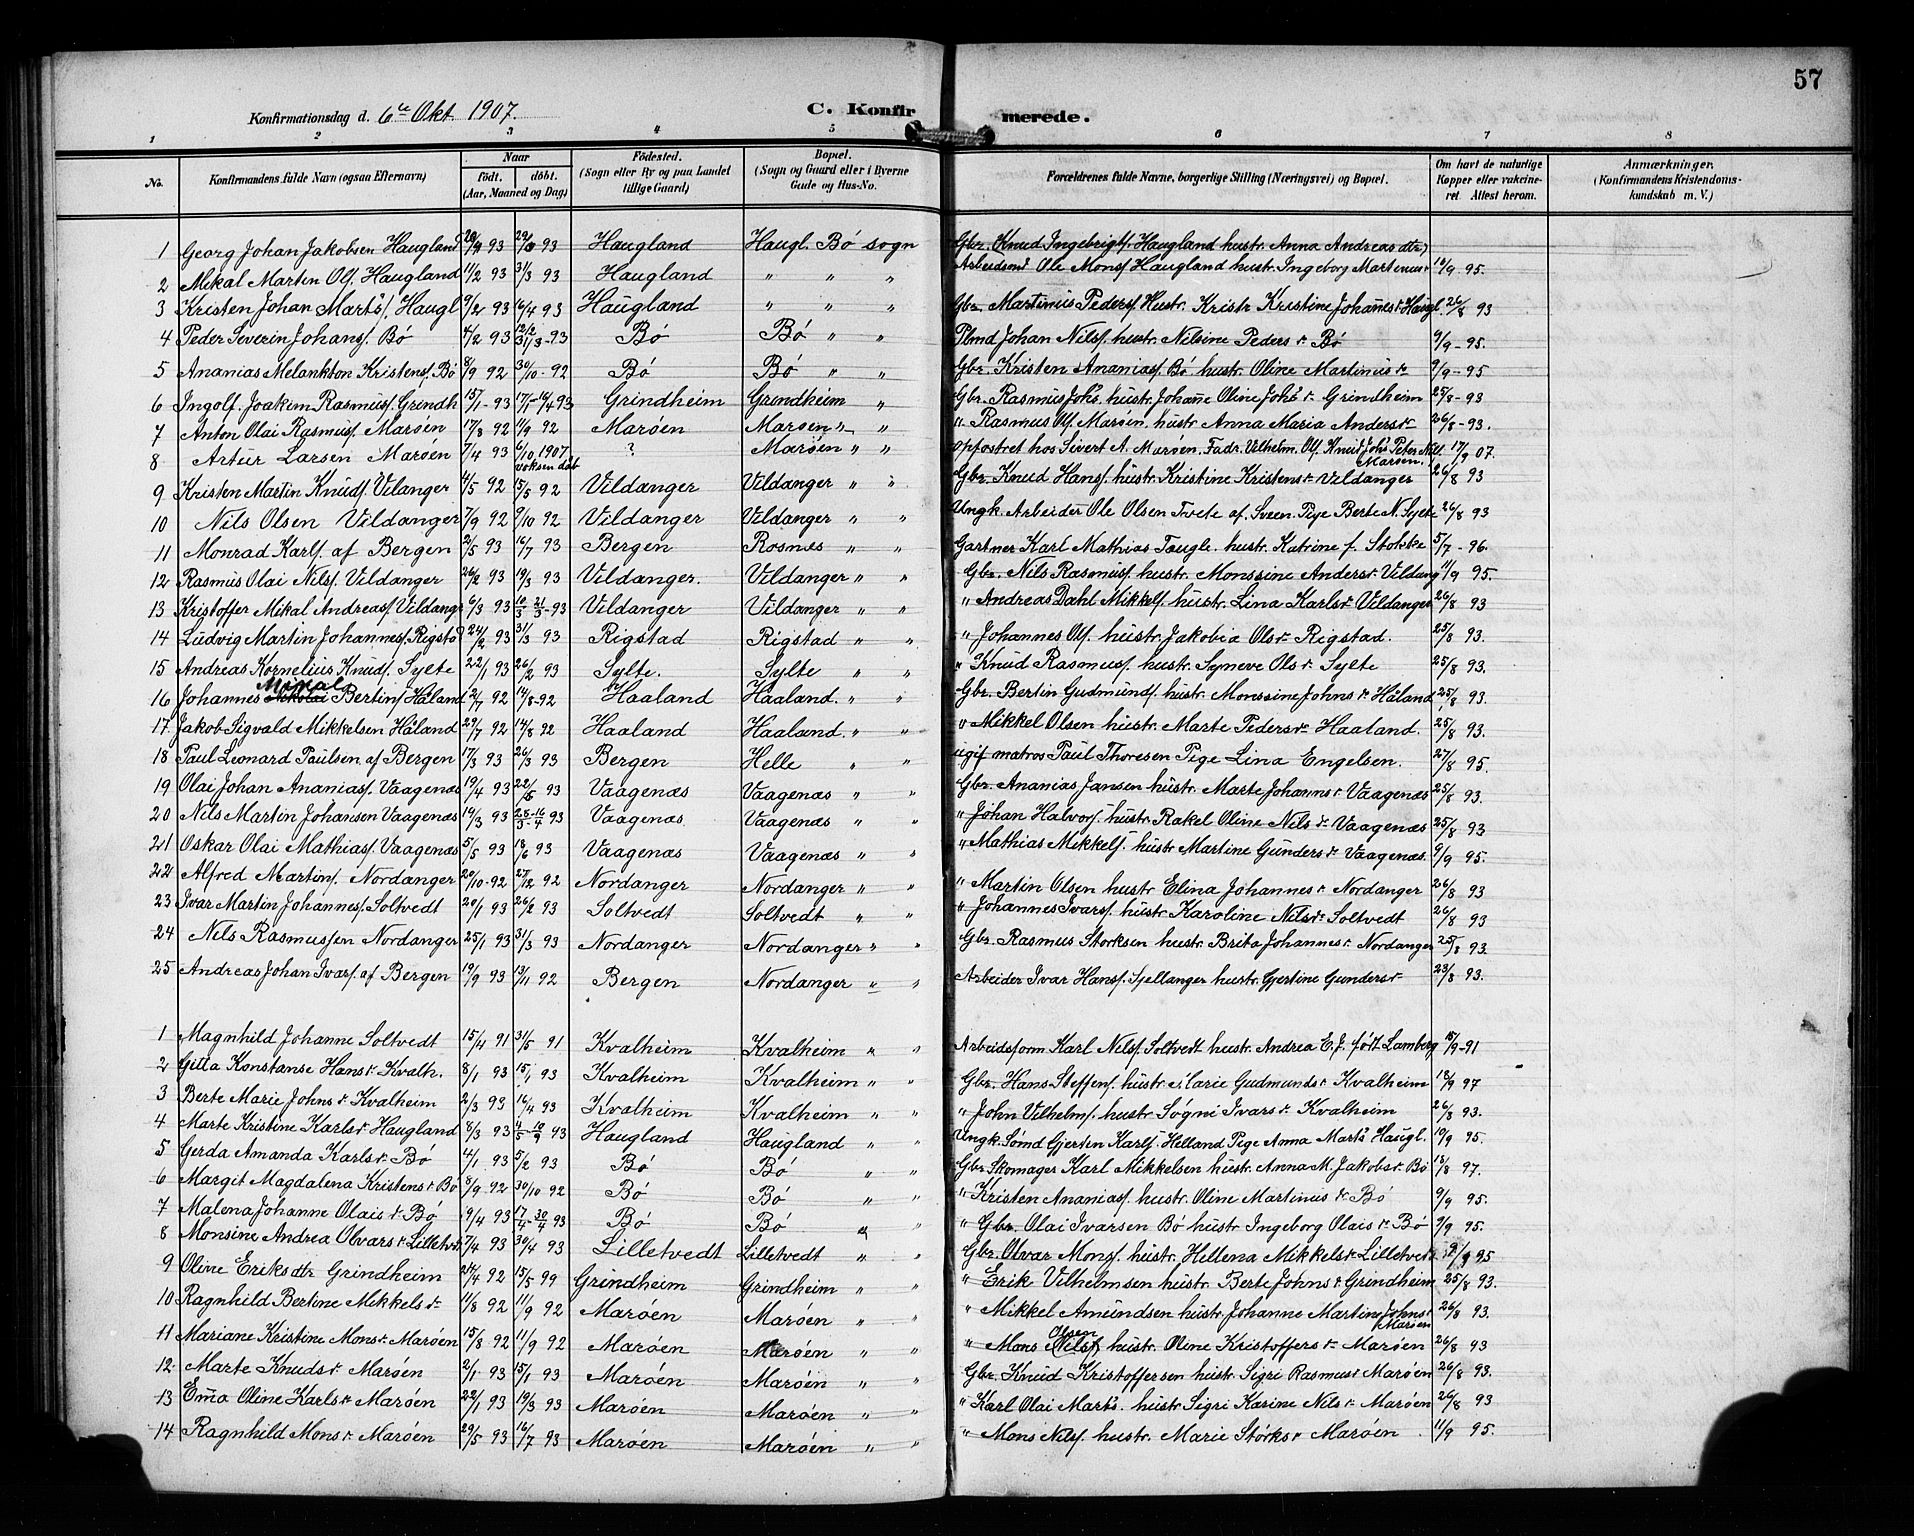 57
Konfirmationsdag d. 6te Okt. 1907.
C. Konfirmerede.
1 2 3 4 5 6 7 8
No. Konfirmandens fulde Navn (ogsaa Efternavn) Naar født. døbt. (Aar, Maaned og Dag) Fødested. (Sogn eller By og paa Landet tillige Gaard) Bopæl. (Sogn og Gaard eller i Byerne Gade og Hus-No. Forældrenes fulde Navne, borgerlige Stilling (Næringsvei) og Bopæl. Om havt de naturlige Kopper eller vakcineret Attest herom. Anmærkninger. (Konfirmandens Kristendomskundskab m. V.)
1 Georg Johan Jakobsen Haugland 93 93 Haugland Haugl. Bö sogn Gbr. Knud Ingebrigts. Haugland hustr. Anna Andreas dtr)
2 Mikal Martin Ols. Haugland 11/2 93 31/3 93 Haugland " " " Arbeidsmd Ole Mons. Haugland hustr. Ingeborg Martinusr 10/9 95.
3 Kristen Johan Marts. Haugl 9/2 93 16/4 93 Haugland " " " Gbr. Martinus Peders. Hustr. Kristine Johañes r Haugl. 26/8 93
4 Peder Severin Johans. Bö 4/2 93 12/2 31/3-93 Bö Bö " " Plmd Johan Nils. hustr. Nilsine Peders r. Bö 9/9-95.
5 Ananias Melankton Kristens. Bö 8/9 92 30/10-92 Bö Bö " " Gbr. Kristen Ananias. Bö hustr. Oline Martinus r 9/9-95
6 Ingolf Joakim Rasmus. Grindh 15/1-93 17/1-16/4 93 Grindheim Grindheim " Gbr. Rasmus Johs. hustr. Johañe Oline Johs r. Grindheim 25/8-93
7 Anton Olai Rasmus. Maröen 17/8 92 11/9 92 Maröen Maröen " " " Rasmus Ols. Maröen hustr Anna Maria Anders r 26/8-93.
8 Artur Larsen Maröen 7/4 93 6/10 1907 voksen dåb ? Maröen " " opfostret hos Sivert A. Maröen. Fadr. Vilhelm Ols. Knud Johs Peter Nils. Maröen. 17/9 07.
9 Kristen Martin Knuds. Vilanger 4/5 92 15/5 92 Vildanger Vildanger " " Gbr. Knud Hans. hustr. Kristine Kristens r Vildanger 26/8 93
10 Nils Olsen Vildanger 7/9 92 9/10 92 Vildanger Vildanger " " Ungk. Arbeider Ole Olsen Tvete af Sveen. Pige Berte N. Sylte 26/8 93
11 Monrad Karls. af Bergen 2/5 93 16/7 93 Bergen Rosnes " " Gartner Karl Mathias Taugle. hustr. Katrine f. Stokke 5/7-96.
12 Rasmus Olai Nils. Vildanger 26/2 93 19/3 93 Vildanger. Vildanger " " Gbr. Nils Rasmus. hustr. Monssine Andersr Vildang 11/9 95.
13 Kristoffer Mikal Andreas. Vildange 6/3 93 10/3 21/3-93 Vildanger Vildanger " " " Andreas Dahl Mikkels. hustr. Lina Karls r. Vildanger 26/8 93
14 Ludvig Martin Johannes. Rigstd 24/2 93 31/3 93 Rigstad Rigstad " " " Johannes Ols. hustr. Jakobia Ols r. Rigstad. 25/8 93.
15 Andreas Kornelius Knuds. Sylte 22/1 93 26/2 93 Sylte. Sylte " " " Knud Rasmus. hustr. Syneve Ols r. Sylte 25/8 93.
16 Johannes Mikal Bertins. Håland 2/7 92 14/8-92 Haaland Haaland. " " Gbr. Bertin Gudmunds. hustr. Monssine Johns r. Håland 25/8 93.
17 Jakob Sigvald Mikkelsen Håland 29/7 92 14/8 92 Haaland Haaland. " " " Mikkel Olsen hustr. Marte Peders r Haaland. 25/8 93.
18 Paul Leonard Paulsen af Bergen 17/3 93 26/3 93 Bergen Helle " " ugif matros Paul Thoresen Pige Lina Engelsen. 27/8 95.
19 Olai Johan Ananias. Vaagenæs 19/4 93 22/5 93 Vaagenæs Vaagenæs " " Gbr. Ananias Jansen hustr. Marte Johanns r Vaagenæs 25/8 93.
20 Nils Martin Johansen Vaagenæs 14/3 93 25/3-16/4 93 Vaagenæs Vaagenæs " " " Johan Halvors. hustr. Rakel Oline Nils r. Vaagenæs 25/8 93
21 Oskar Olai Mathias. Vaagenæs 5/5 93 18/6 93 Vaagenæs Vaagenæs " " " Mathias Mikkels. hustr Martine Gunders r Vaagenæs. 9/9 95.
22 Alfred Martins. Nordanger 20/10-92 27/12 92 Nordanger Nordanger " " " Martin Olsen hustr Elina Johannes r. Nordanger 26/8 93
23 Ivar Martin Johannes. Soltvedt 20/1 93 26/2 93 Soltvedt Soltvedt " " " Johannes Ivars. hustr Karoline Nils r. Soltvedt 26/8 93
24 Nils Rasmussen Nordanger 25/1 93 31/3 93 Nordanger Nordanger " " Gbr. Rasmus Storksen hustr. Brita Johannes r. Nordanger 25/8 93.
25 Andreas Johan Ivars. af Bergen 19/9 93 13/11 92 Bergen Nordanger " " Arbeider Ivar Hans. Sjellanger hustr. Gjertine Gunders r 23/8 93.
1 Magnhild Johanne Soltvedt 15/4 91 31/5 91 Kvalheim Kvalheim " " Arbeidsform Karl Nils. Soltvedt hustr. Andrea E. J. født Lamberg 15/9-91
2 Gitla Konstanse Hans r. Kvalh. 8/1 93 15/1 93 Kvalheim Kvalheim " " Gbr. Hans Steffens. hustr Marie Gudmunds r. Kvalheim 18/9 97
3 Berte Marie Johns r. Kvalheim 2/3 93 16/4 93 Kvalheim Kvalheim " " " John Vilhelms. hustr. Søgni Ivars r. Kvalheim 26/8 93.
4 Marte Kristine Karls r. Haugland 8/3 93 93 Haugland Haugland " " Ungk. Sømd Gjerten Karls. Helland Pige Anna Marts Haugl. 10/9 95.
5 Gerda Amanda Karls r. Bö 4/1 93 5/2 93 Bö Bö " " Gbr Skomager Karl Mikkelsen hustr. Anna M. Jakobs r. Bö 18/8 97.
6 Margit Magdalena Kristens r. Bö 8/9 92 30/10 92 Bö Bö " " " Kristen Ananias. hustr. Oline Martinus r. Bö 9/9 95.
7 Malena Johanne Olais r. Bö 9/4 93 17/4-30/4 93 Bö Bö " " " Gbr. Olai Ivarsen Bö hustr Ingeborg Olais r. Bö 9/9 95.
8 Monsine Andrea Olvars r. Lilletv 7/4 93 30/4 93 Lilletvedt Lilletvedt " " Gbr. Olvar Mons. hustr. Hellena Mikkels r. Lilletvedt 9/9 95
9 Oline Eriks dtr Grindheim 24/4 92 15/5 99 Grindheim Grindheim " " " Erik Vilhelmsen hustr. Berte Johns r. Grindheim 25/8 93.
10 Ragnhild Bertine Mikkels r 11/8 92 11/9 92 Maröen Maröen " " " Mikkel Amundsen hustr. Johanne Martine Johns r Maröen 26/8 93.
11 Mariane Kristine Mons r. Maröen 15/8 92 11/9 92 Maröen Maröen " " " Mons Olsen (Nils.) hustr. Oline Kristoffers r. Maröen 26/8 93
12 Marte Knuds r. Maröen 2/1 93 15/1 93 Maröen Maröen " " Gbr. Knud Kristoffersen hustr Sigri Rasmus r Maröen 26/8 93.
13 Em̃a Oline Karls r. Maröen 22/1 93 19/3 93 Maröen Maröen " " " Karl Olai Marts. hustr Sigri Karine Nils r. Maröen 26/8 93
14 Ragnhild Mons r. Maröen 29/5 93 16/7 93 Maröen Maröen " " " Mons Nils. hustr. Marie Störks r. Maröen 11/9 95.